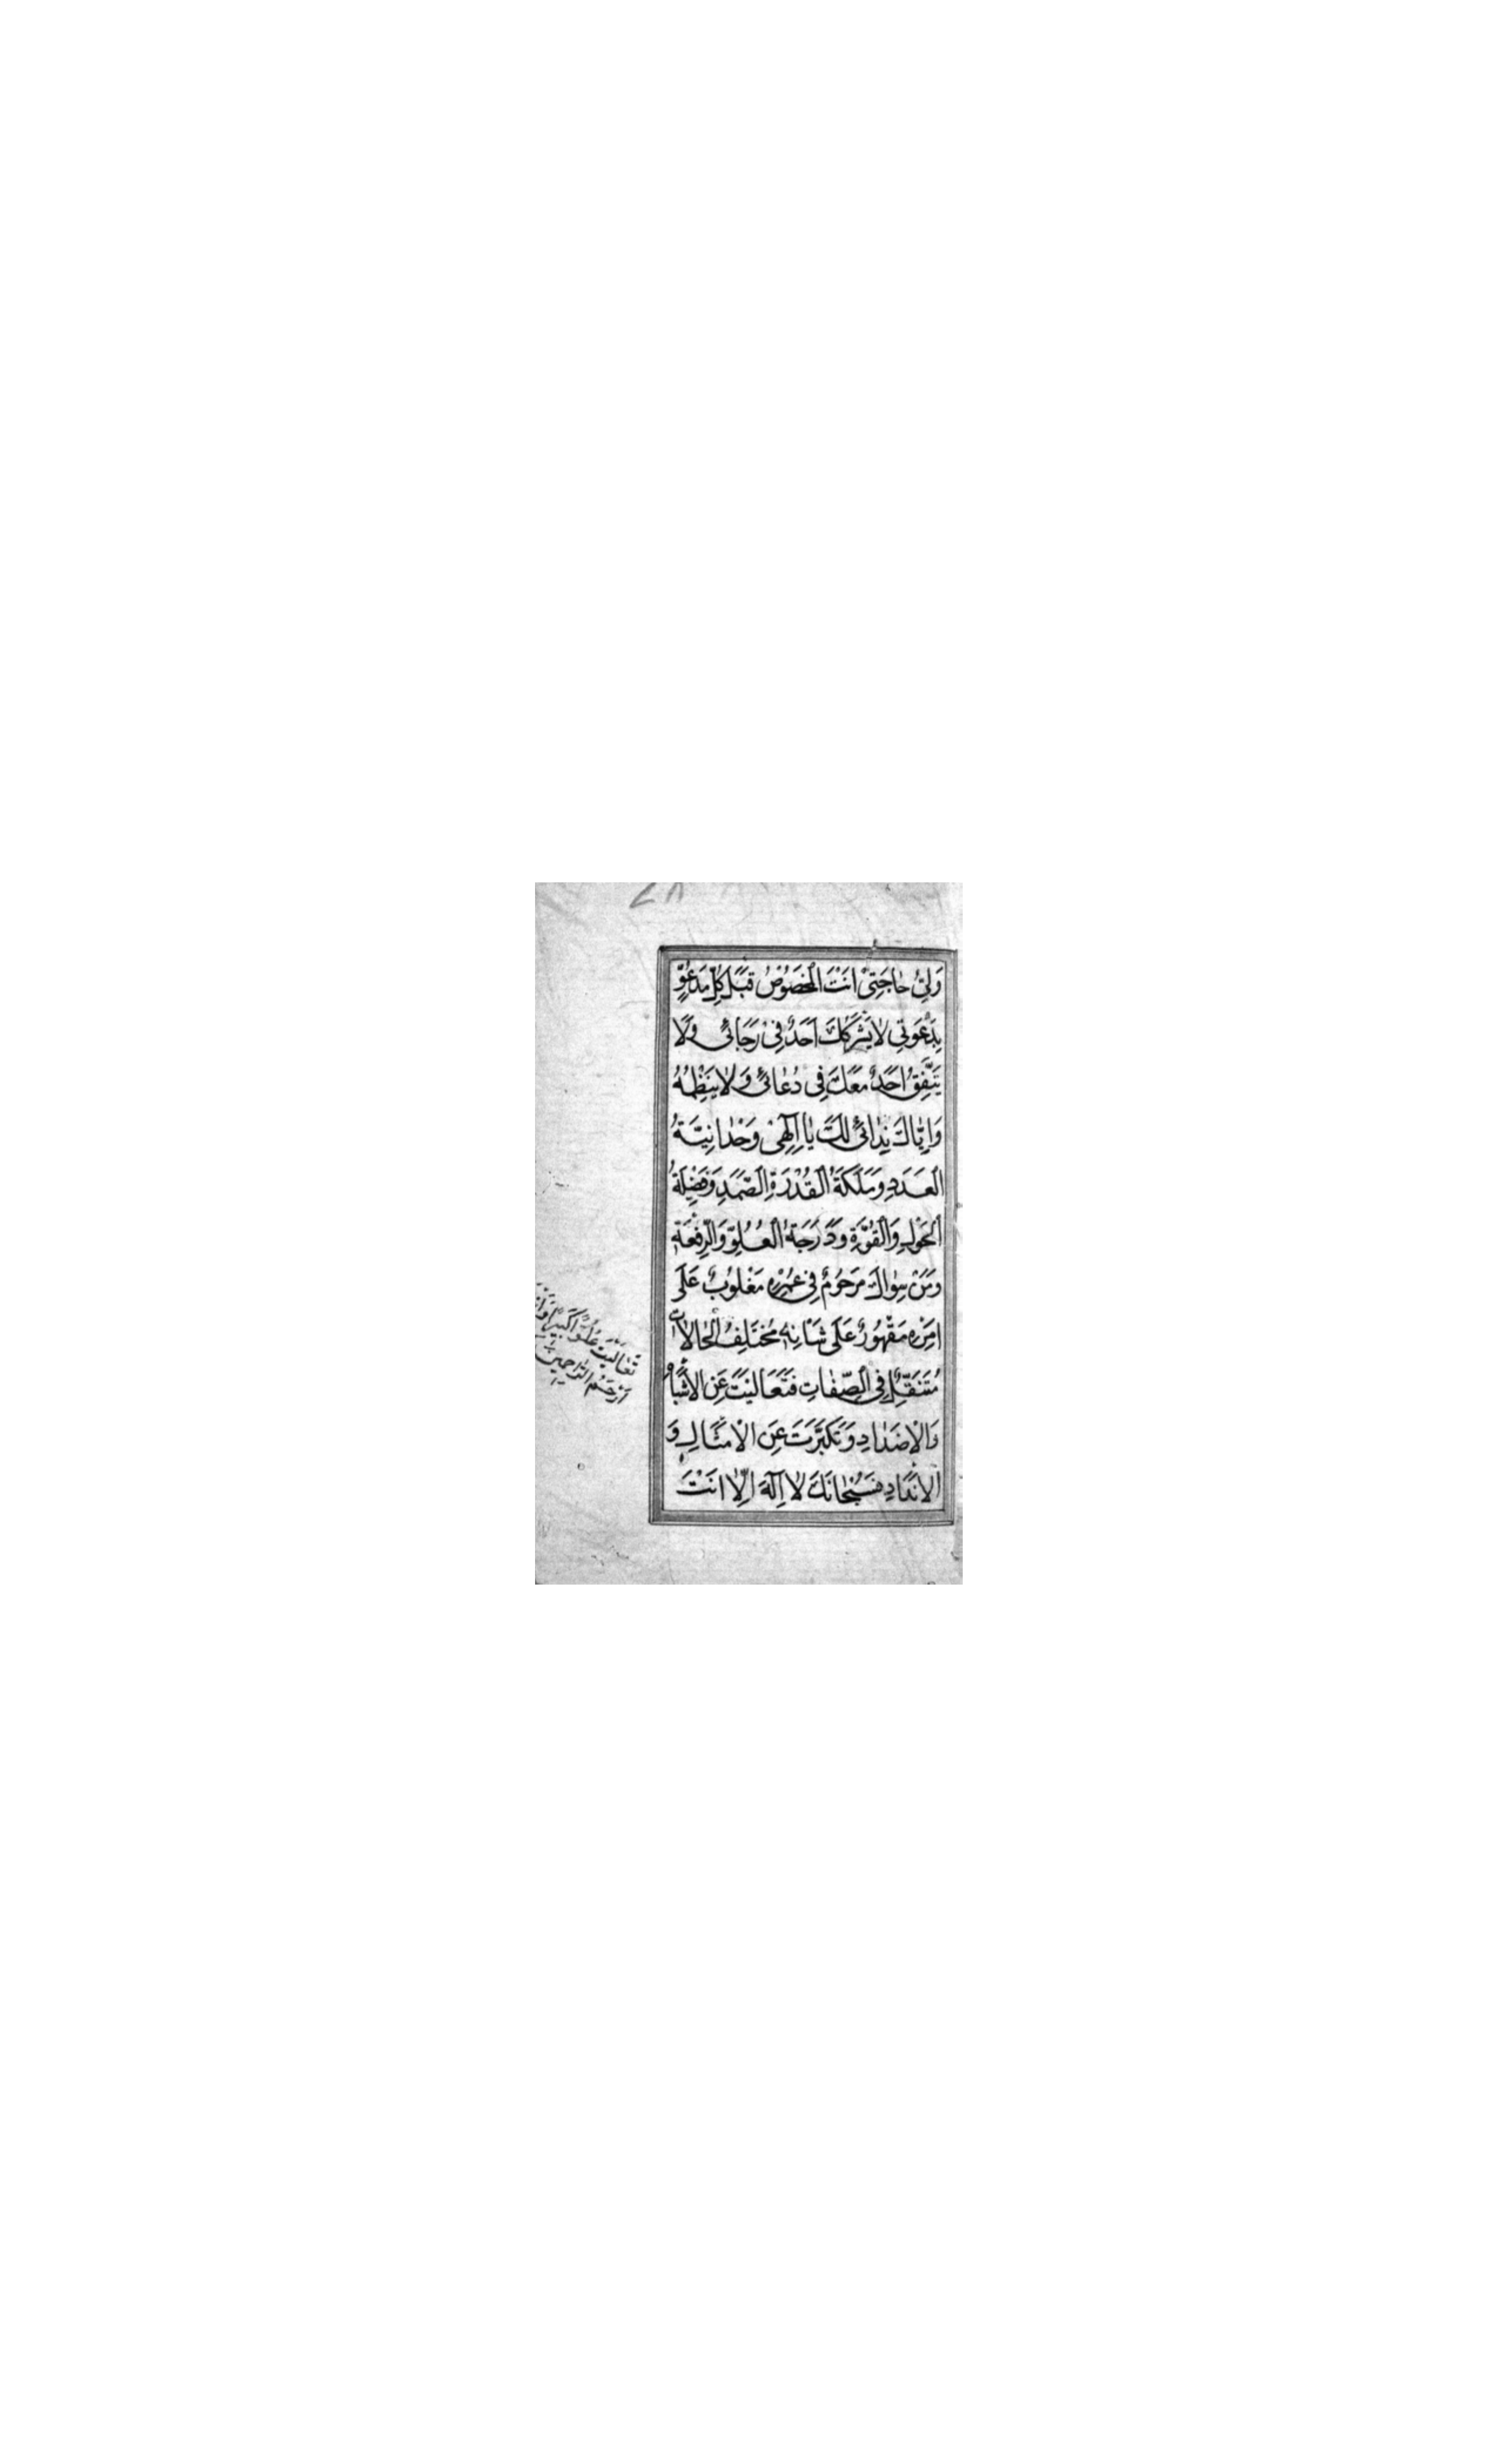 وَلِيُّ حاجَتِىْ اَنْتَ الْمَخْصُوصُ قَبْلَ كُلِّ مَدْعُوٍّ
بِدَعْوَتِى لا يَشْرَكُكَ اَحَدٌ فِىْ رَجَائِى وَلَا
يَتَّفِقُ اَحَدٌ مَعَكَ فِى دُعائِى وَلا يَنْظِمُهُ
وَاِيَّاكَ نِدائِى لَكَ يا اِلٰهِى وَحْدانِيَّةُ
الْعَدَدِ وَمَلَكَةُ الْقُدْرَةِ الصَّمَدِ وَفَضِيلَةُ
الْحَوْلِ وَالْقُوَّةِ وَدَرَجَةُ الْعُلُوِّ وَالرِّفْعَةِ
وَمَنْ سِواكَ مَرْحُومٌ فِى عُمْرِهِ مَغْلُوبٌ عَلَى
اَمْرِهِ مَقْهُورٌ عَلَى شَانِهِ مُخْتَلِفُ الْحَالاتِ
مُتَنَقِّلٌ فِى الصِّفَاتِ فَتَعَالَيْتَ عَنِ الاَشْبَاهِ
وَالْاَضْدَادِ وَتَكَبَّرْتَ عَنِ الْاَمْثَالِ وَ
الْاَنْدَادِ فَسُبْحَانَكَ لا اِلٰهَ اِلّا اَنْتَ
تَعَالَيْتَ عُلُوًّا كَبِيرًا
اَرْحَمُ الرَّاحِمِينَ